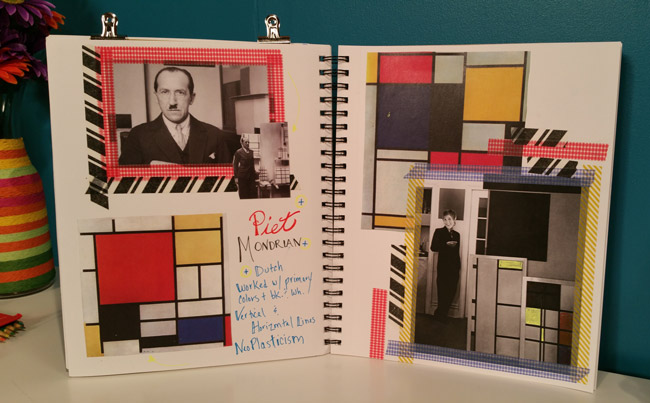 Piet
MONDRIAN
+ Dutch
Worked w/ primary
colors + bk. wh.
Vertical +
Horizontal Lines
NeoPlasticism